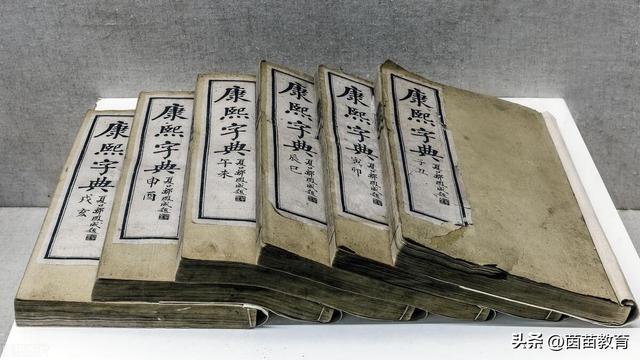 康熙字典
戌亥
康熙字典
申酉
康熙字典
午未
康熙字典
辰巳
康熙字典
寅卯
康熙字典
子丑
头条 @茵苗教育